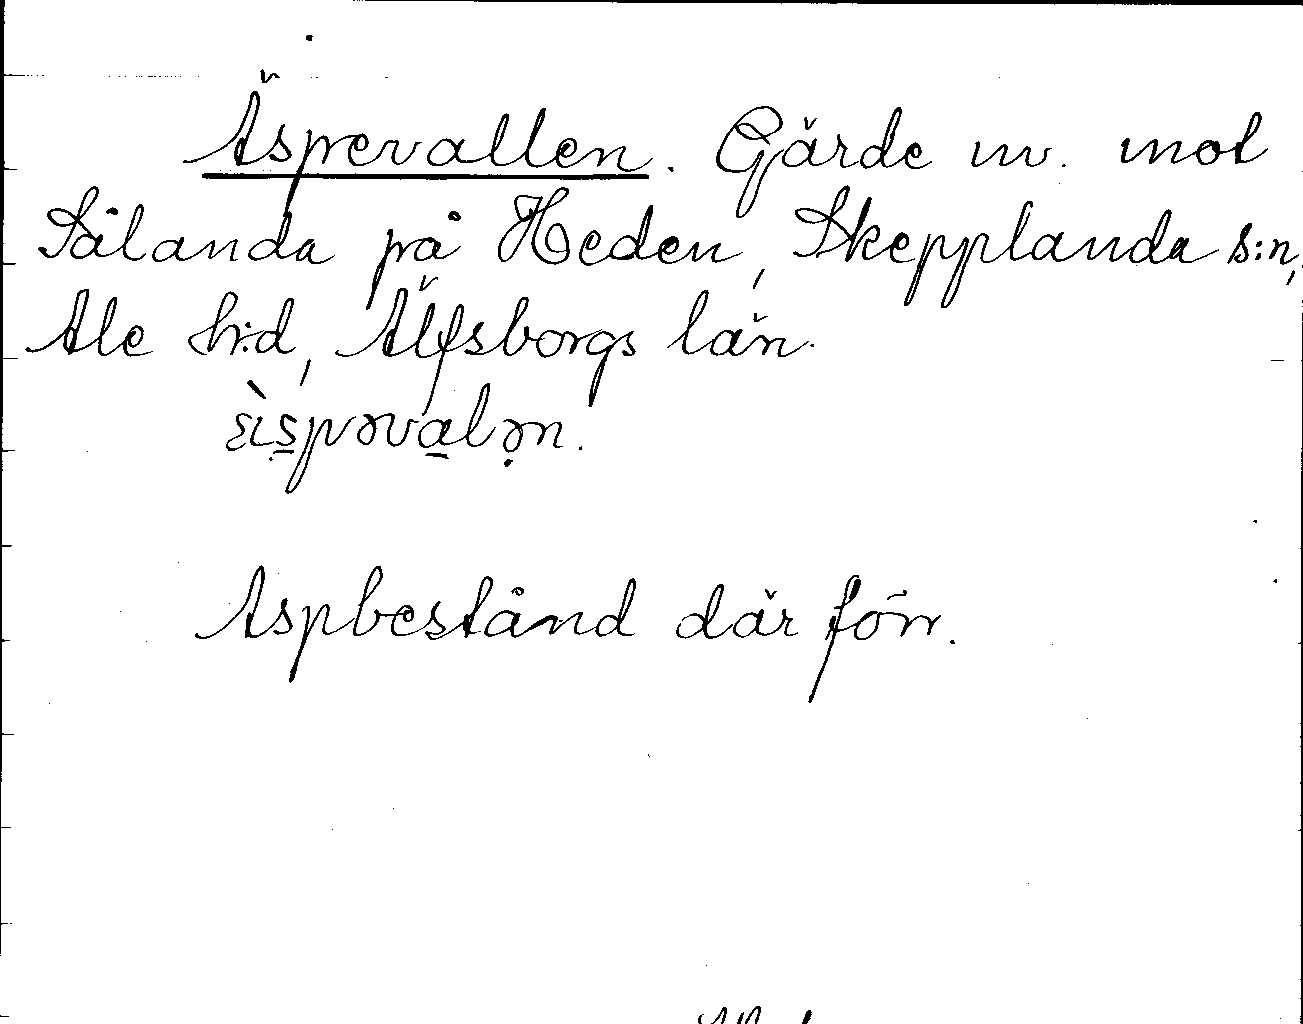 Äspevallen. Gärde nv. mot
Sålanda på Heden, Skepplanda s:n,
Ale h:d, Älfsborgs län.
Aspbestånd där förr.